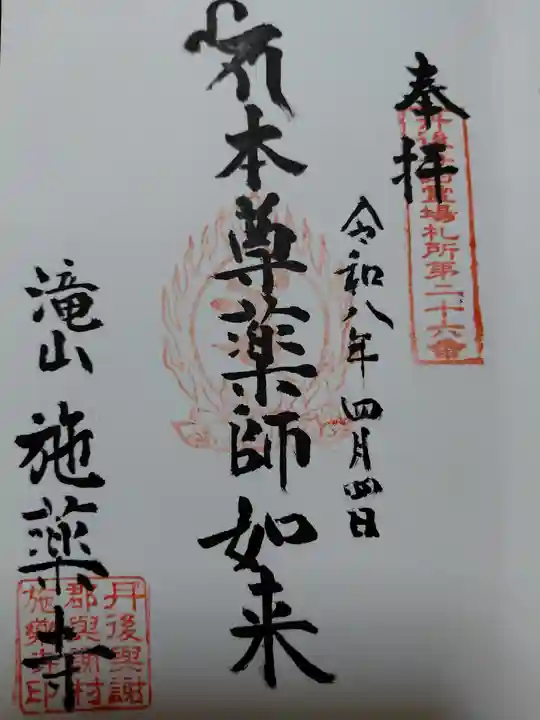 奉拝
丹後 霊場札所第二十六番
令和八年四月四日
本尊薬師如来
滝山 施薬寺
丹後與謝
郡與謝村
施薬寺印